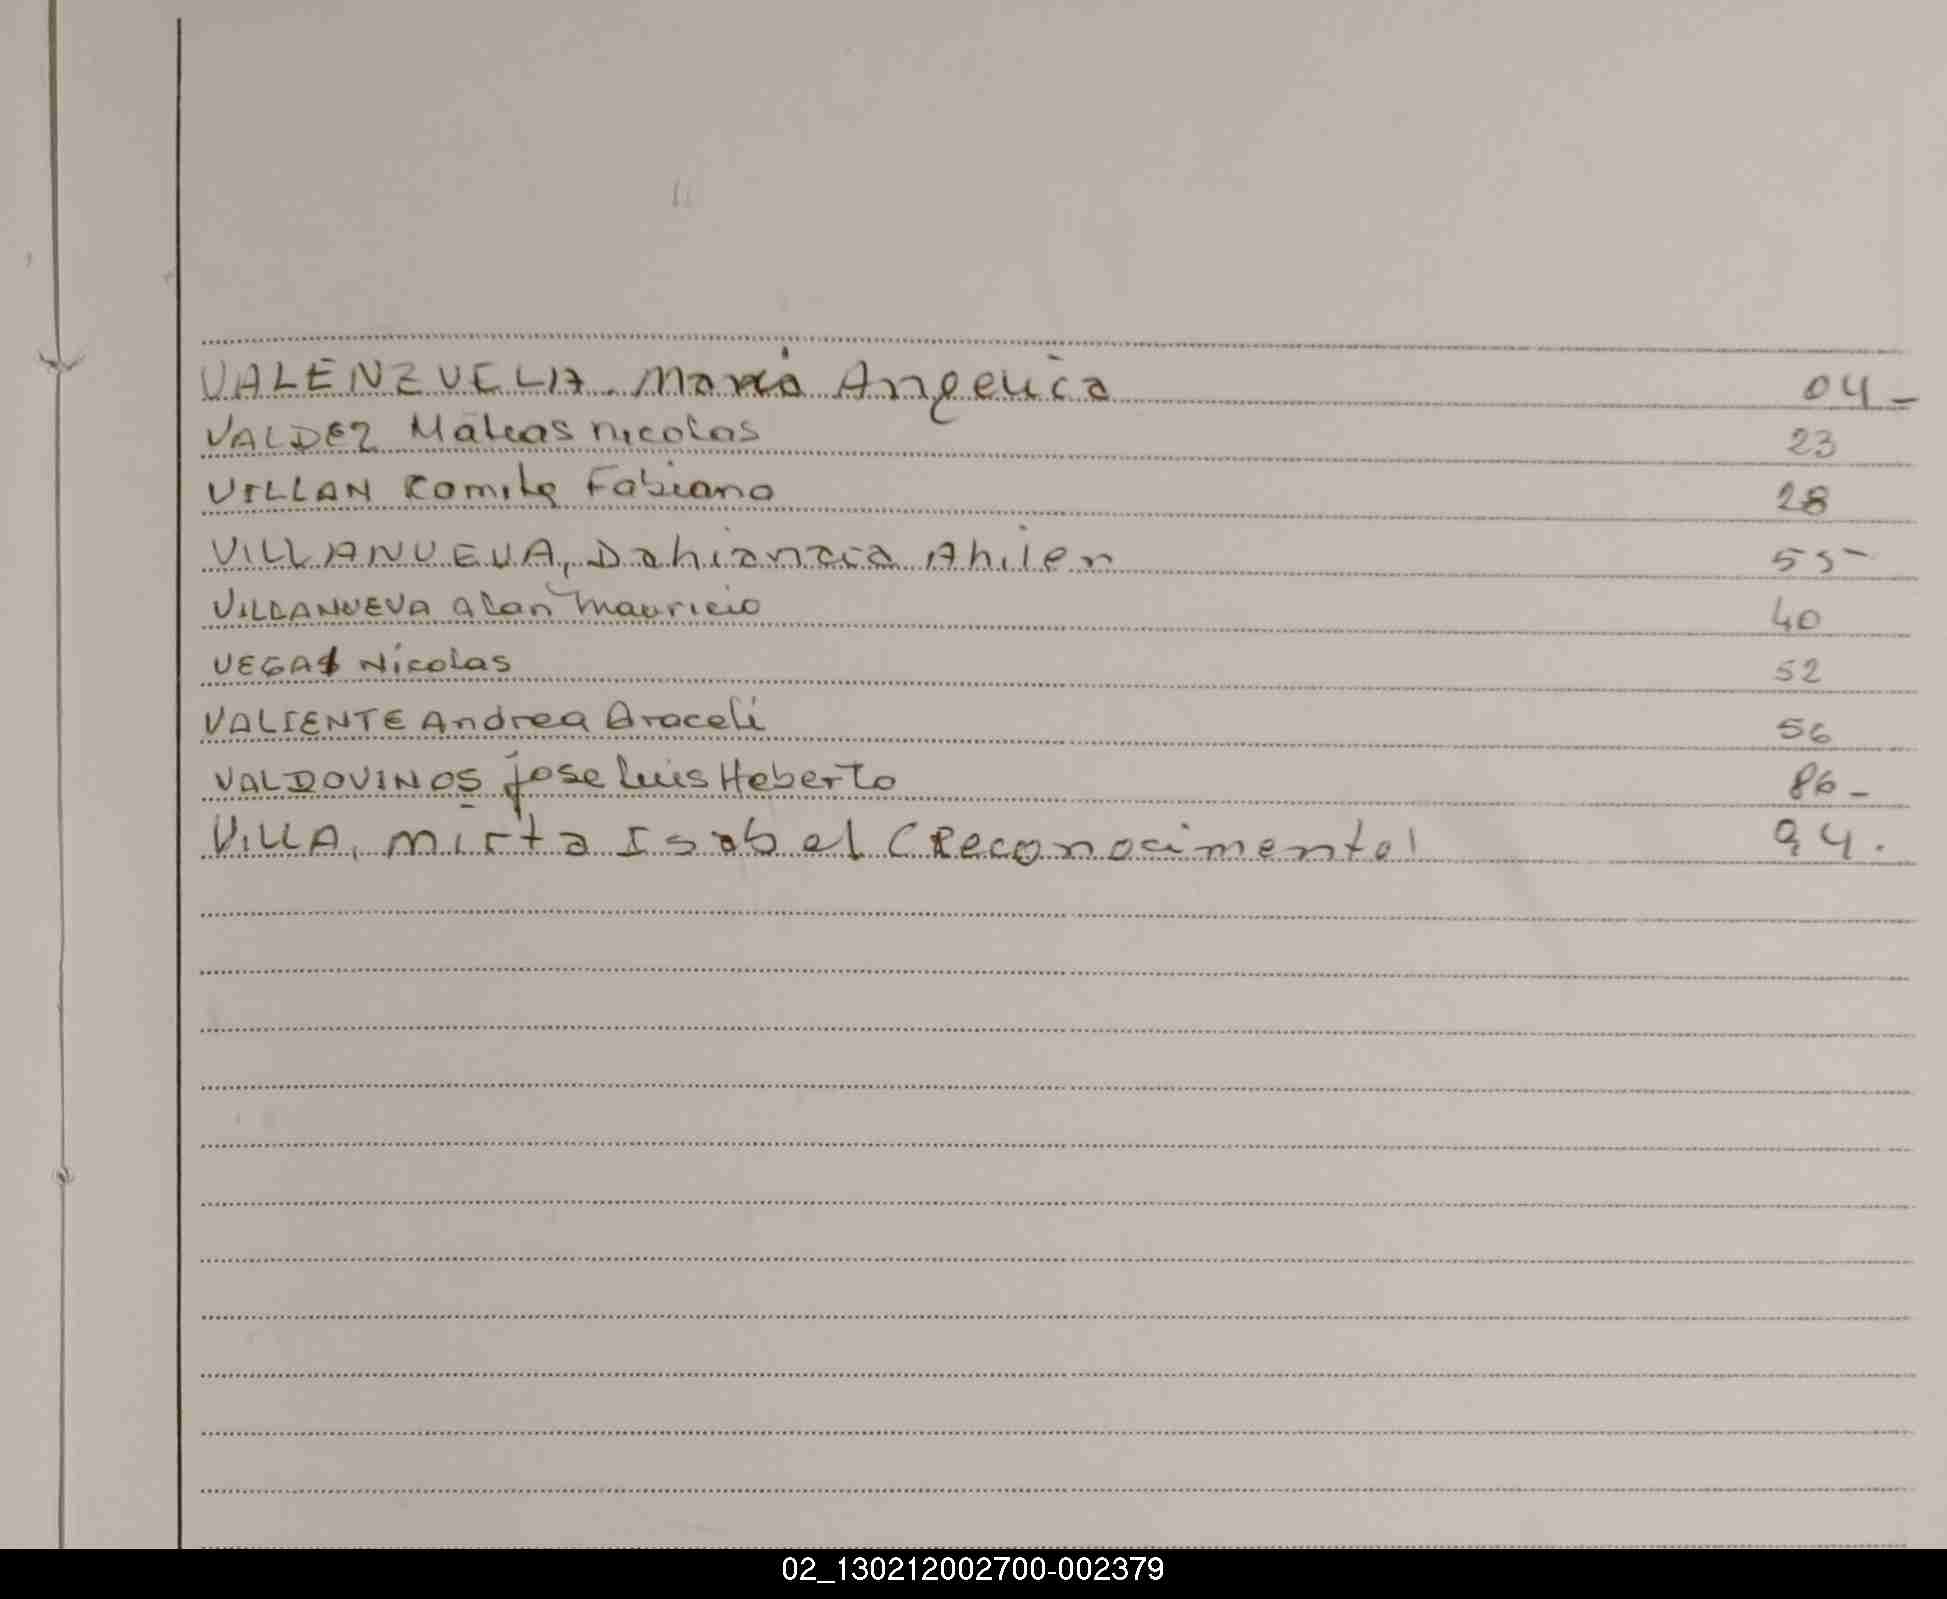 VALENZUELA. María Angelica 04-
VALDEZ Matias nicolas 23
VILLAN Kamila Fabiana 28
VILLANUEVA, Ahilen 55-
VILLANUEVA alan mauricio 40
VEGAS Nicolas 52
VALIENTE Andrea Araceli 56
VALDOVINOS jose luis Heberto 86-
VILLA, mirta Isabel (Reconocimento) 94.
02_130212002700-002379